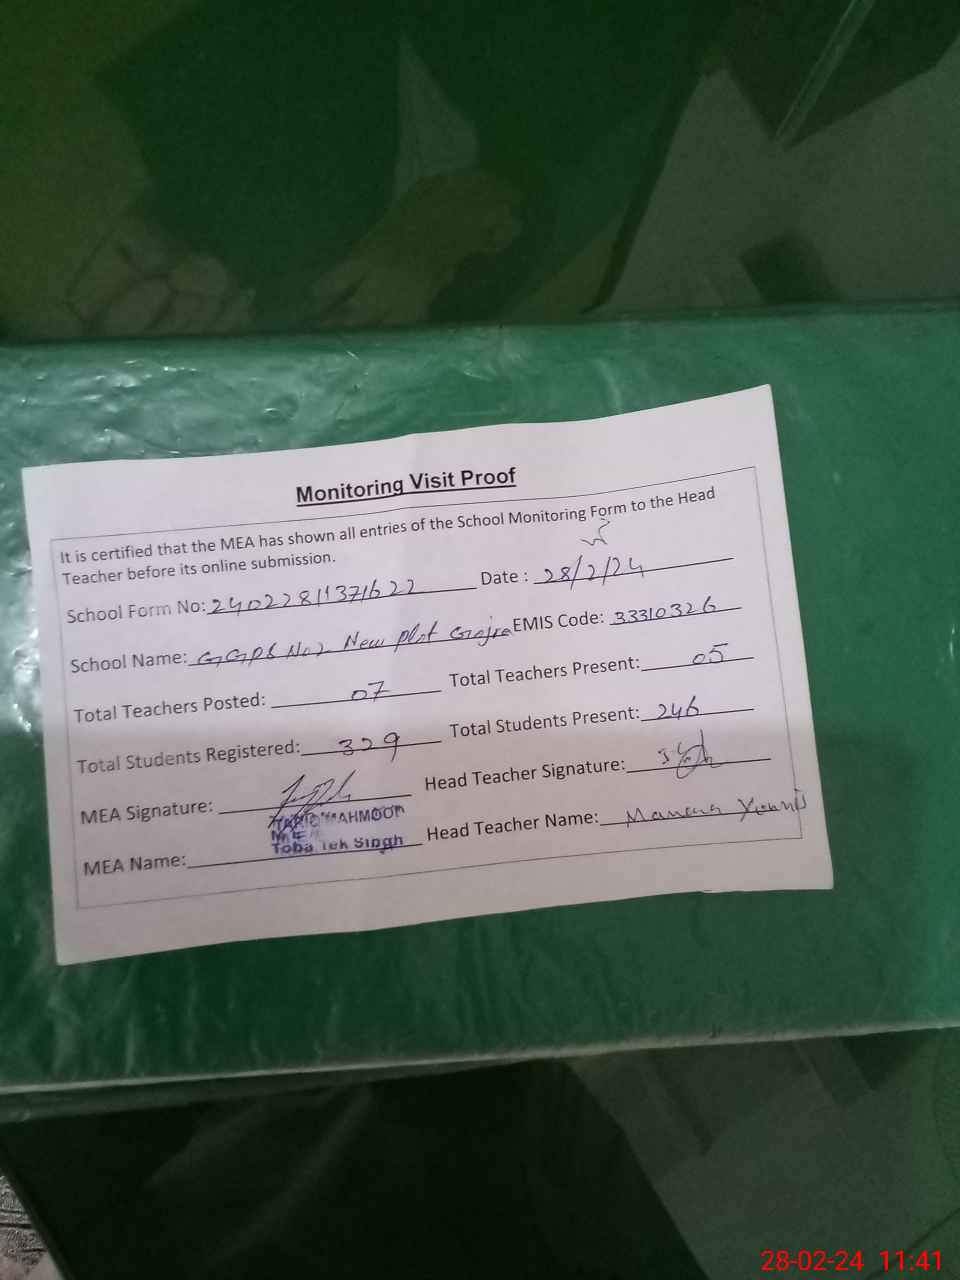 Monitoring Visit Proof
It is certified that the MEA has shown all entries of the School Monitoring Form to the Head
Teacher before its online submission.
School Form No: 24022811371622 Date : 28/2/24
School Name: GGPS No 2 New Plot Gojra EMIS Code: 33310326
Total Teachers Posted: 07 Total Teachers Present: 05
Total Students Registered: 329 Total Students Present: 246
MEA Signature: Head Teacher Signature:
TARIQ MAHMOOD
MEA
Toba Tek Singh
MEA Name: Head Teacher Name:
28-02-24 11:41